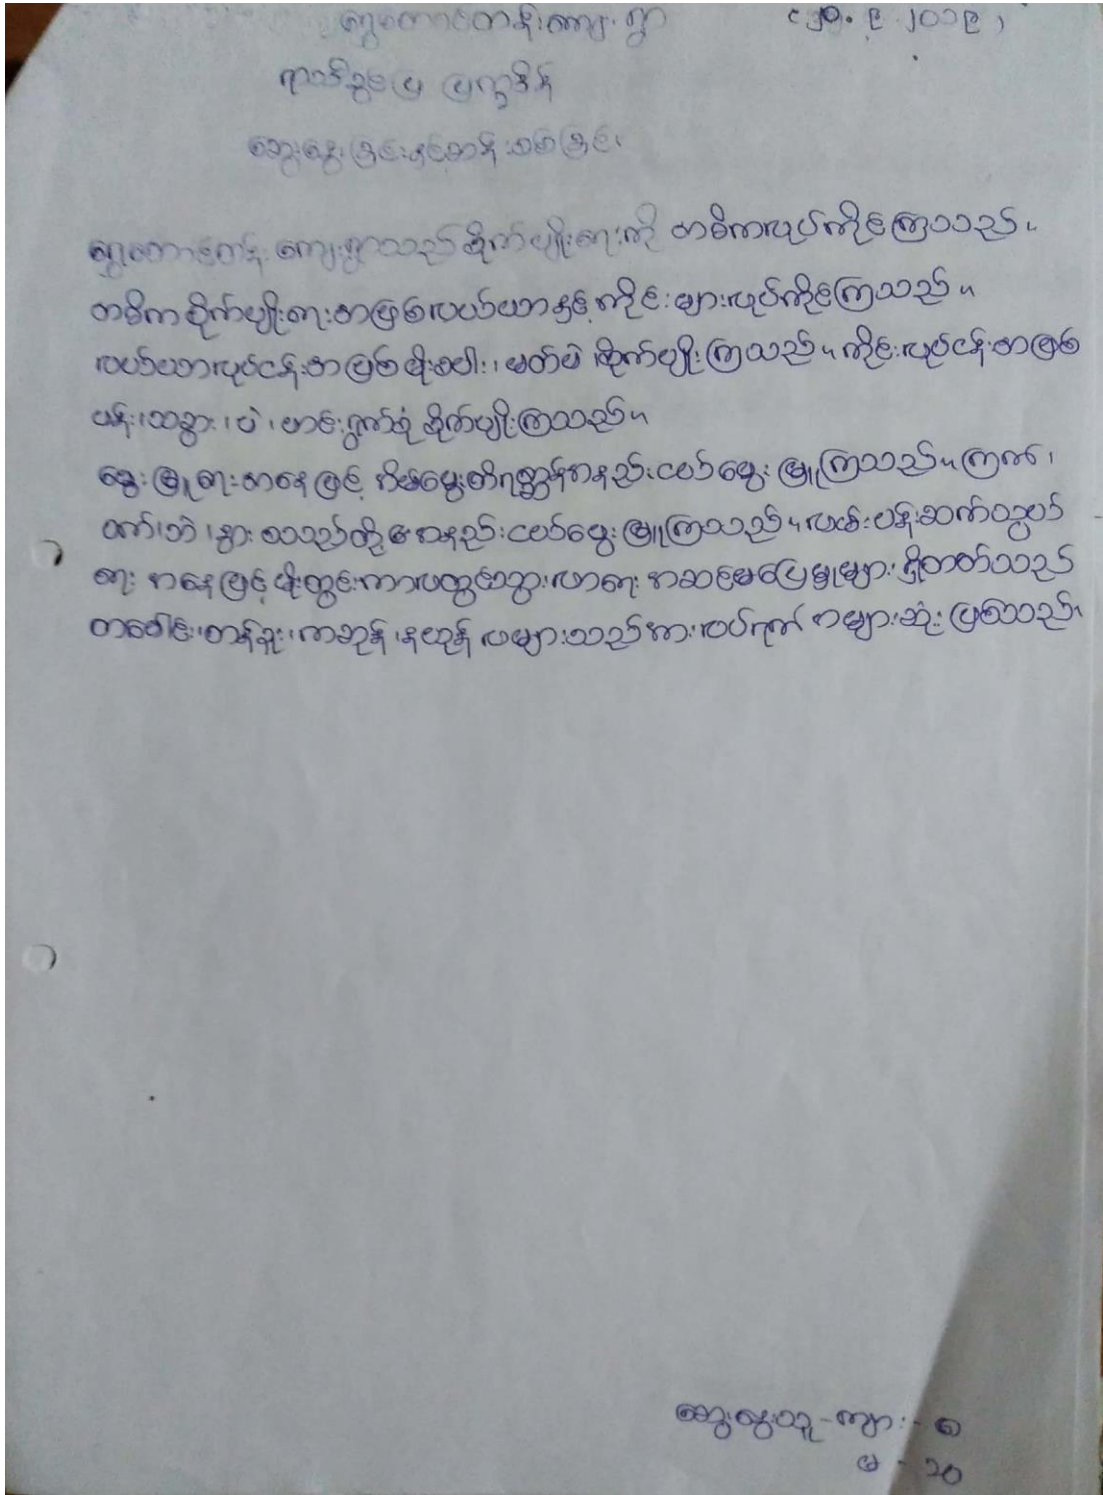 ရွှေတောင်တန်းကျေးရွာ (၂၅.၉.၂၀၁၉)
ရာသီခွင်ပြ ပြက္ခဒိန်
ဆွေးနွေးခြင်းနှင့်ဆန်းစစ်ခြင်း
ရွှေတောင်တန်း ကျေးရွာသည် စိုက်ပျိုးရေးကို အဓိကလုပ်ကိုင်ကြသည်။
အဓိက စိုက်ပျိုးရေးအဖြစ် လယ်ယာနှင့် ကိုင်းများလုပ်ကိုင်ကြသည်။
လယ်ယာလုပ်ငန်းအဖြစ် မိုးစပါး၊ မတ်ပဲ စိုက်ပျိုးကြသည်။ ကိုင်းလုပ်ငန်းအဖြစ်
ပန်း၊ သခွား၊ ပဲ၊ ဟင်းရွက်စုံ စိုက်ပျိုးကြသည်။
မွေးမြူရေးအနေဖြင့် အိမ်မွေးတိရစ္ဆာန်အနည်းငယ်မွေးမြူကြသည်။ ကြက်၊
ဝက်၊ ဘဲ၊ နွား စသည်တို့ အနည်းငယ်မွေးမြူကြသည်။ လမ်းပန်းဆက်သွယ်
ရေး အနေဖြင့် မိုးတွင်းကာလတွင်သွားလာရေး အဆင်မပြေမှုများ ရှိတတ်သည်
တပေါင်း၊ တန်ခူး၊ ကဆုန်၊ နယုန် လများသည်အားလပ်ရက် အများဆုံး ဖြစ်သည်၊
ဆွေးနွေးသူ - ကျား - ၈
မ - ၁၀